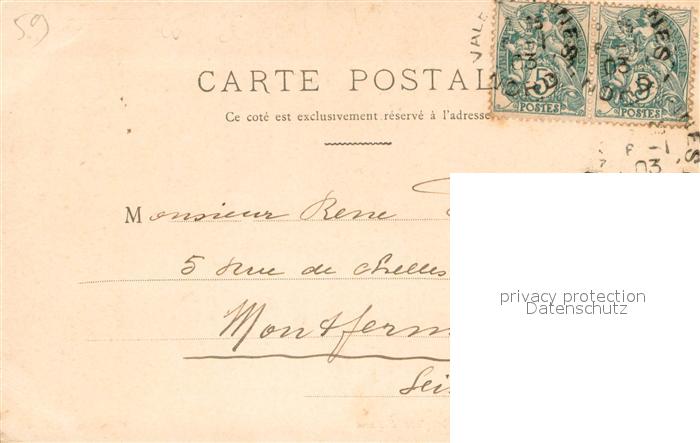 59
CARTE POSTAL
Ce coté est exclusivement réservé à l'adresse
5 POSTES
5 POSTES
VALE NNES
03
NORD
Monsieur Rene
5 Rue de Chelles
Montferm
Sei
privacy protection
Datenschutz